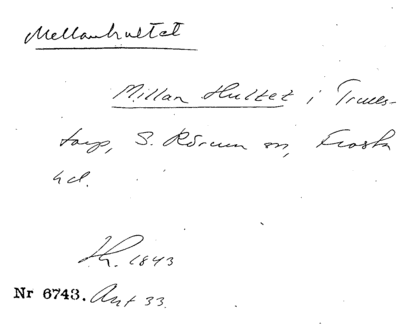 Mellanhultet
Millan Hultet i Trulls-
torp, S. Rörum sn, Frosta
hd.
1843
Nr 6743. Ant 33.